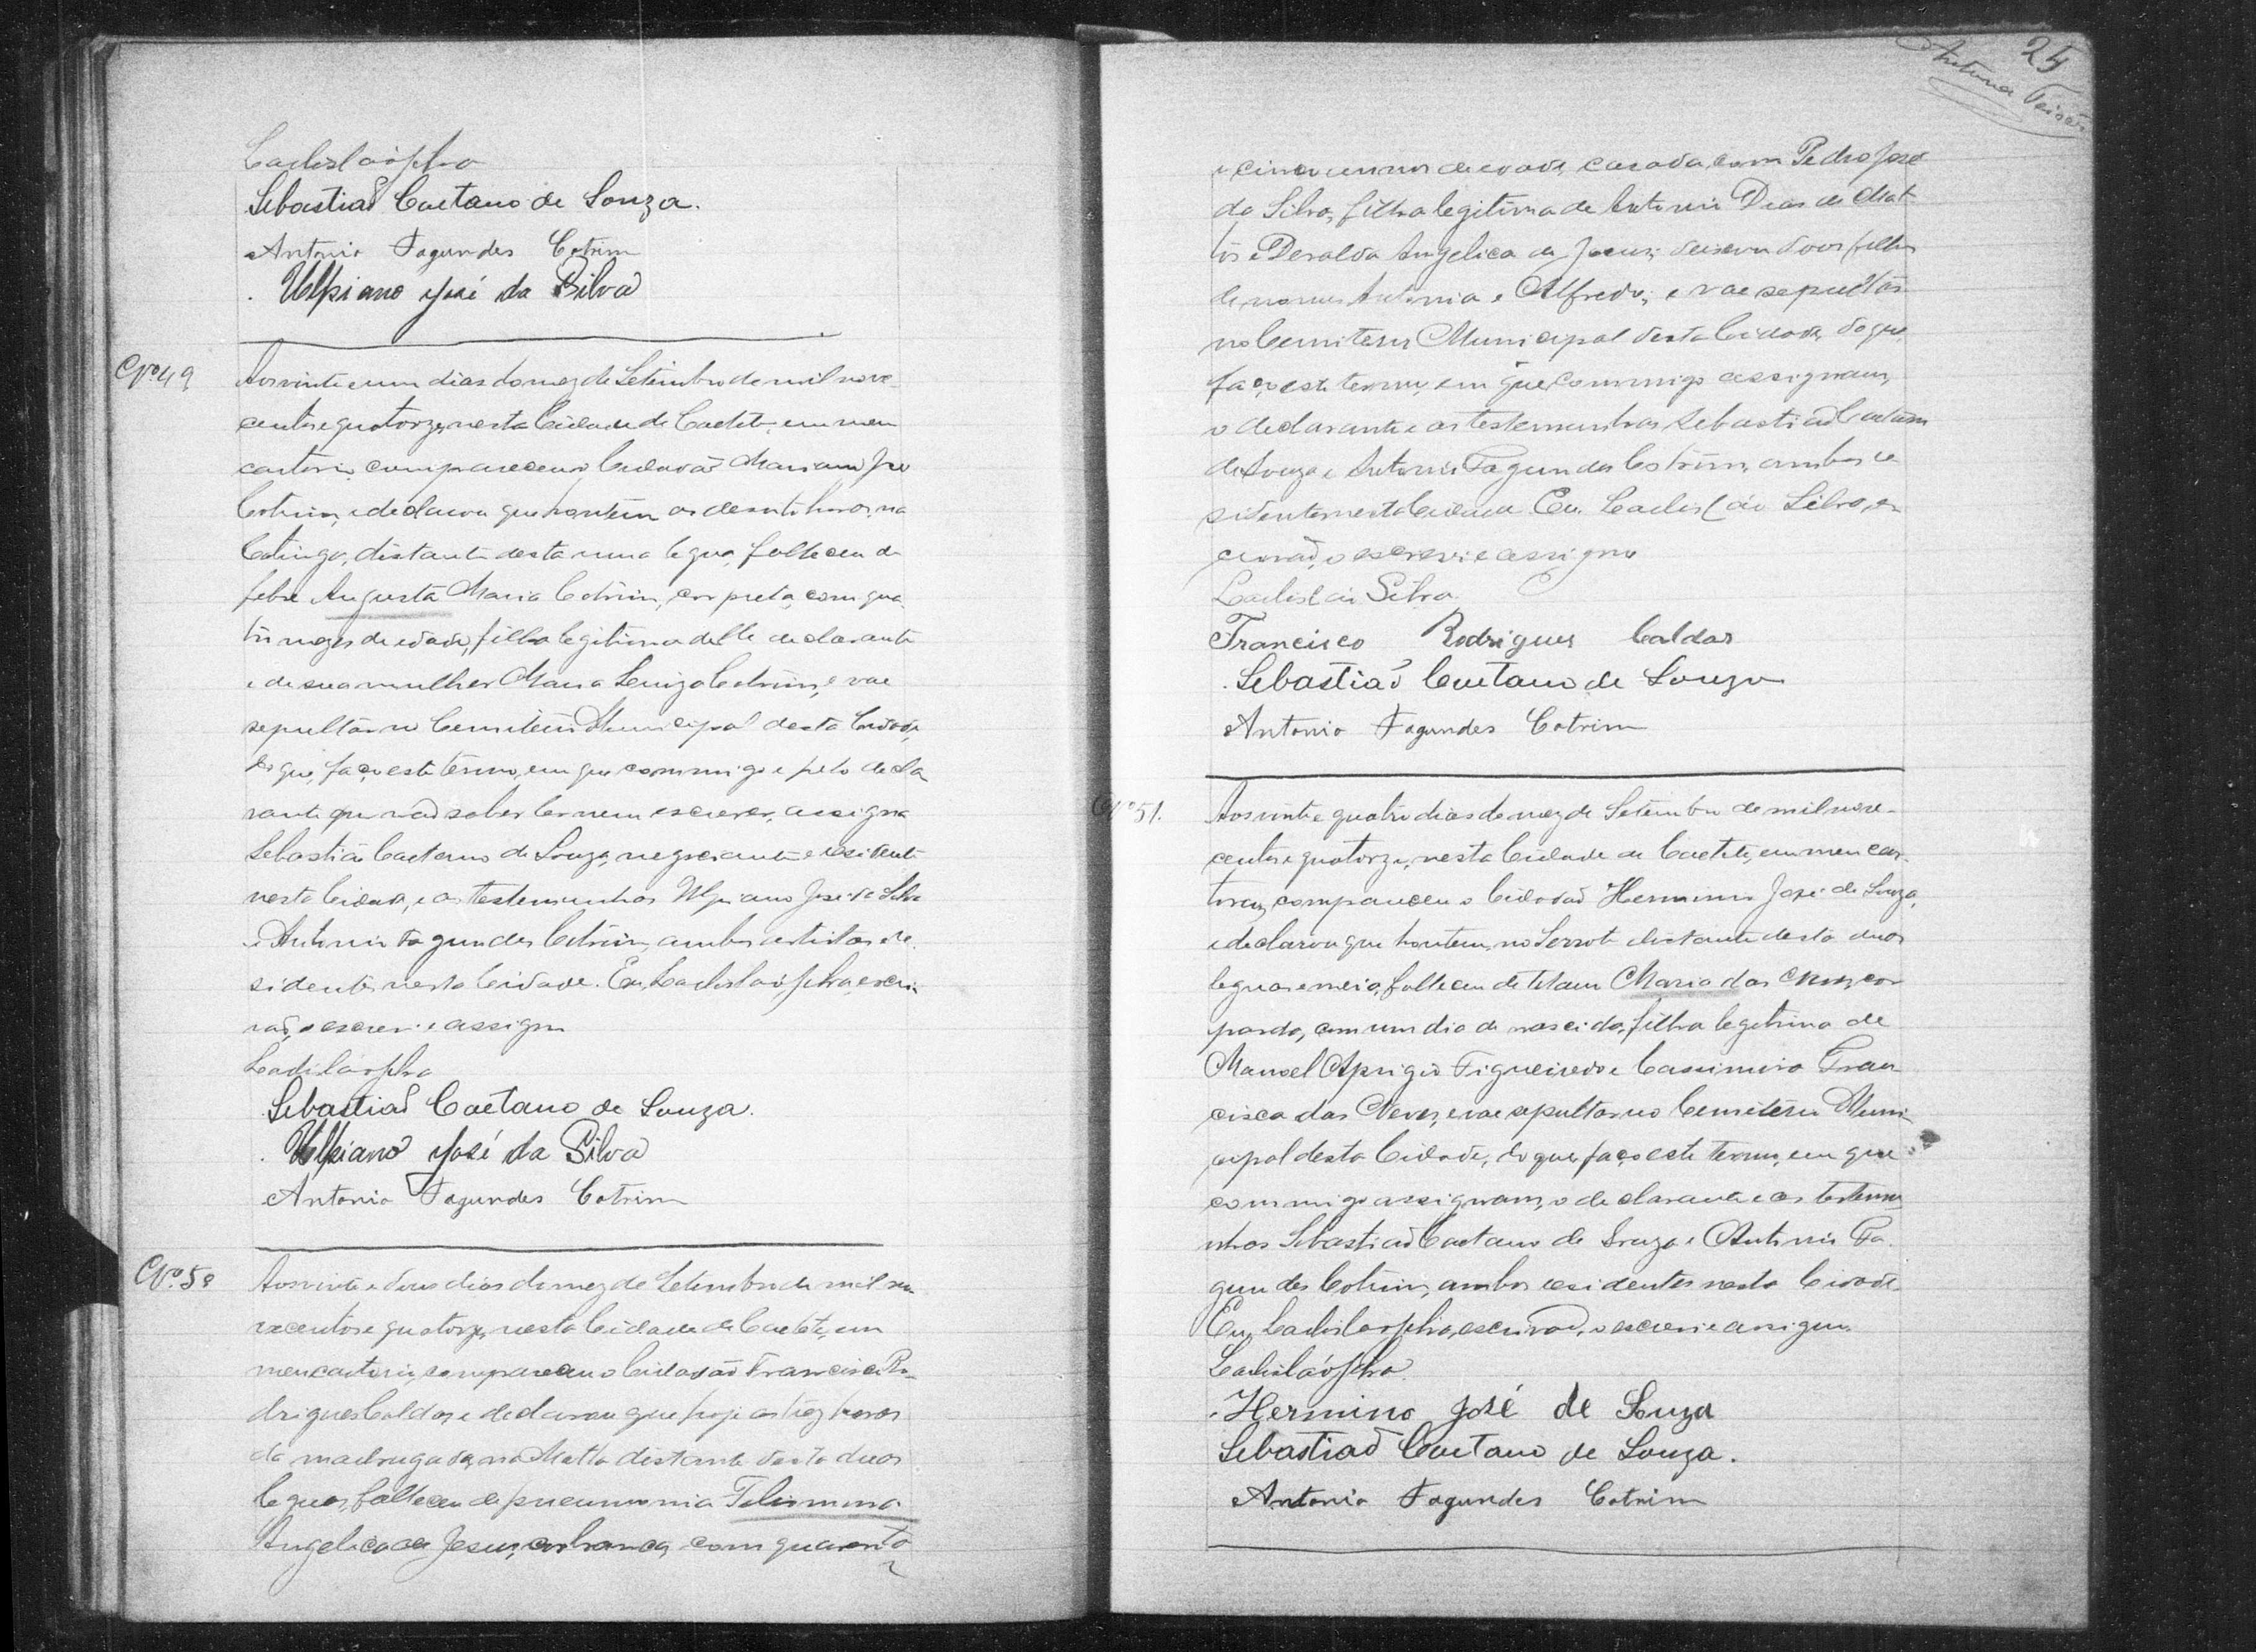 Ladislão Silva
Sebastiaõ Caetano de Souza.
Antonio Fagundes Cotrim
Ulpiano José da Silva
Nº 49
Aos vinte e um dias do mez de Setembro de mil nove
centos e quatorze, nesta Cidade de Caeteté, em meu
cartorio, compareceu o Cidadão Mariano José
Cotrim, e declarou que hontem as desoito horas, na
Catinga, distante desta uma legua, falleceu de
febre Augusta Maria Cotrim, cor preta, com qua
tro mezes de edade, filha legitima delle declarante
e de sua mulher Maria Luiza Cotrim, e vae
sepultar no Cemiterio Municipal desta Cidade,
do que, faço este termo, em que commigo e pelo decla
rante por não saber ler nem escrever, assigna
Sebastião Caetano de Souza, negociante e residente
nesta Cidade, e as testemunhas Ulpiano José da Silva
e Antonio Fagundes Cotrim, ambos artistas e re
sidentes nesta Cidade. Eu, Ladislão Silva, escri
vaõ, o escrevi e assigno
Ladislão Silva
Sebastiaõ Caetano de Souza.
Ulpiano José da Silva
Antonio Fagundes Cotrim
Nº 50
Aos vinte e dous dias do mez de Setembro de mil no
vecentos e quatorze, nesta Cidade de Caeteté, em
meu cartorio, compareceu o Cidadão Francisco Ro
drigues Caldas, e declarou que hoje as trez horas
da madrugada, na Matta distante desta duas
leguas, falleceu de pneumonia Felismina
Angelica de Jesus, cor branca, com quarenta
25
Antonio
e cinco annos de edade, casada com Pedro José
da Silva, filha legitima de Antonio Dias de Mat
tos e Deralda Angelica de Jesus; deixou dous filhos
de nomes Antonia e Alfredo; e vae sepultar
no Cemiterio Municipal desta Cidade, do que,
faço este termo, em que commigo assignam,
o declarante e as testemunhas Sebastiaõ Caetano
de Souza e Antonio Fagundes Cotrim, ambos re
sidentes nesta Cidade. Eu, Ladislão Silva, es
crivaõ, o escrevi e assigno
Ladislão Silva.
Francisco Rodrigues Caldas
Sebastiaõ Caetano de Souza
Antonio Fagundes Cotrim
Nº 51.
Aos vinte e quatro dias do mez de Setembro de mil nove
centos e quatorze, nesta Cidade de Caeteté, em meu car
torio, compareceu o Cidadaõ Hermino José de Souza,
e declarou que hontem, no Serrote distante desta duas
leguas e meia, falleceu de tetano Maria das cor
parda, com um dia de nascida, filha legitima de
Manoel Aprigio Figueiredo e Cassimira Fran
cisca das Neves, e vae sepultar no Cemiterio Muni
cipal desta Cidade, do que, faço este termo, em que
commigo assignam, o declarante e as testemu
nhas Sebastiaõ Caetano de Souza e Antonio Fa
gundes Cotrim, ambos residentes nesta Cidade.
Eu, Ladislão Silva, escrivaõ, o escrevi e assigno.
Ladislão Silva
Hermino José de Souza
Sebastiaõ Caetano de Souza.
Antonio Fagundes Cotrim